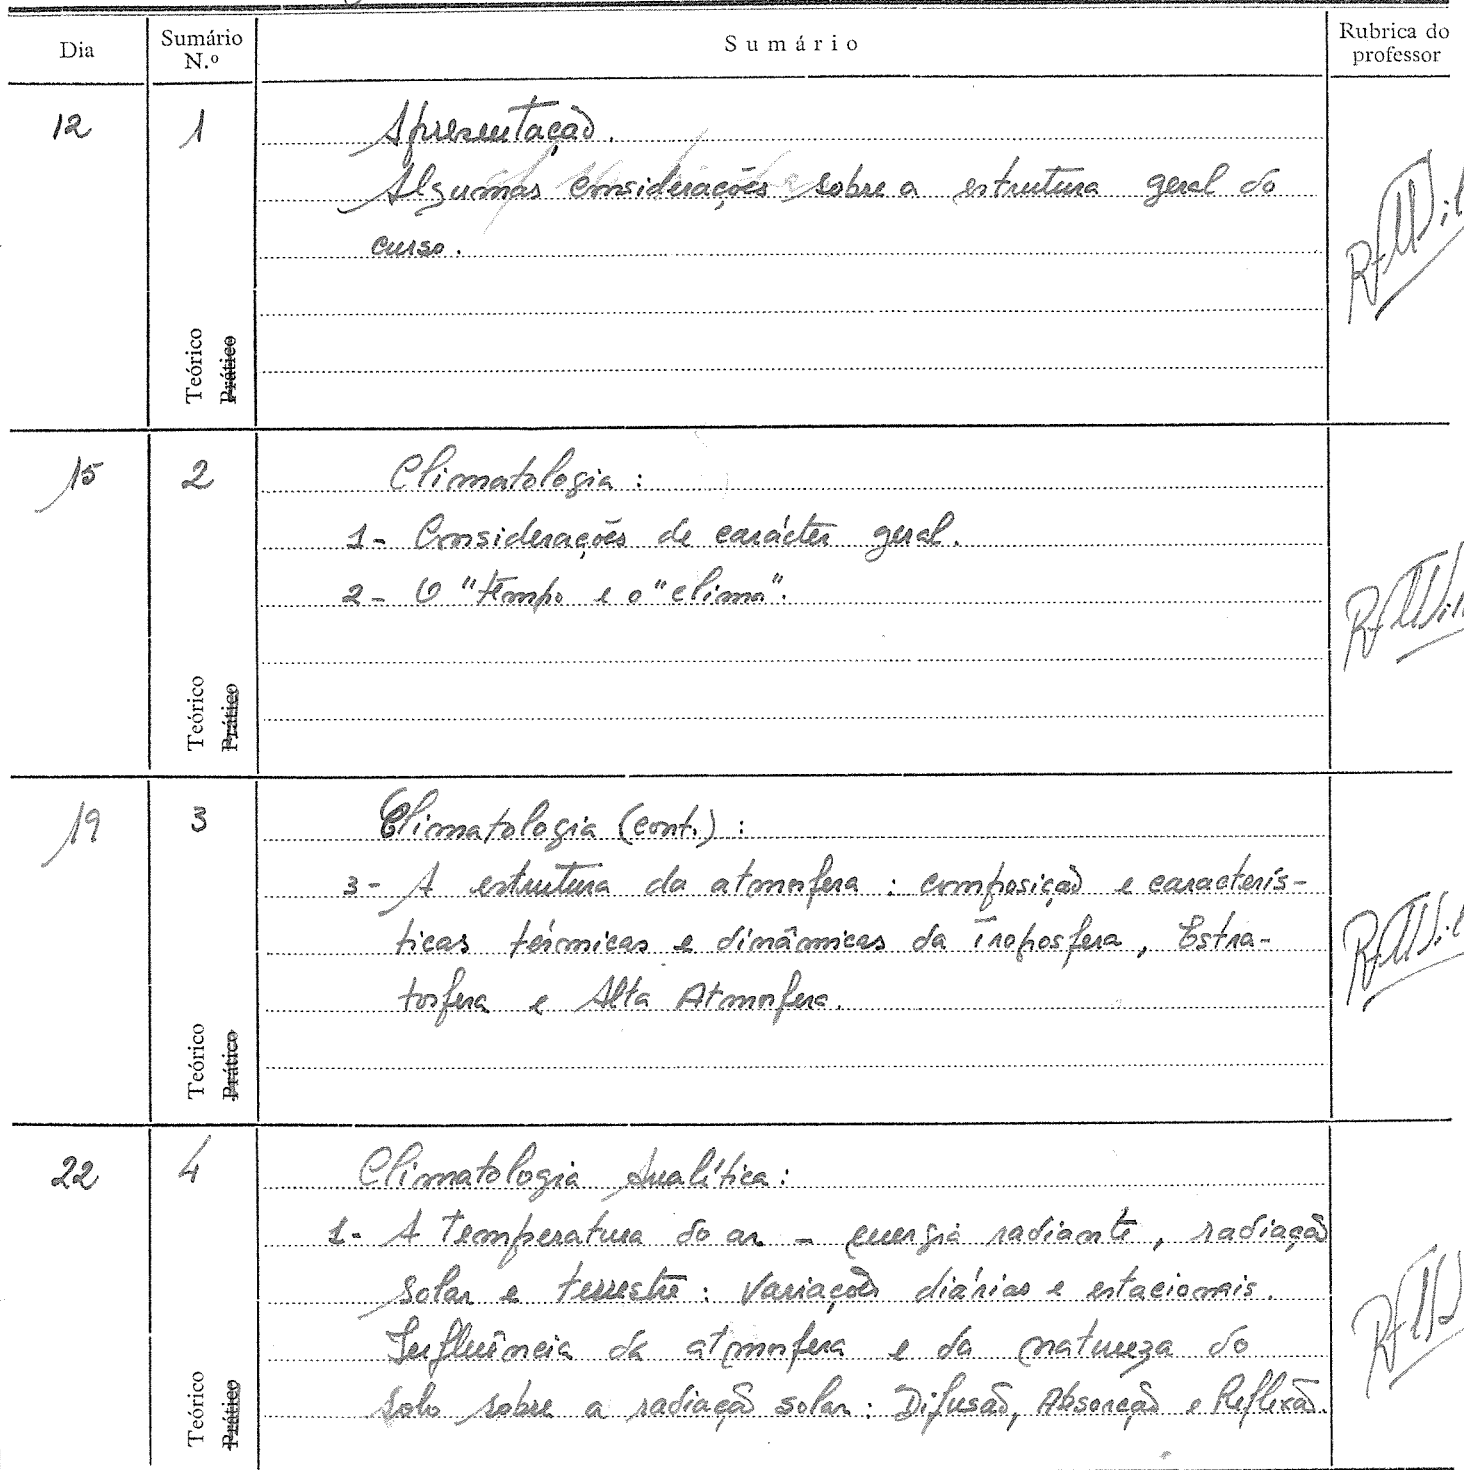 Dia
Sumário N.º
Sumário
Rubrica do professor
12
1
Apresentação.
Algumas considerações sobre a estrutura geral do
curso.
Teórico
Prático
15
2
Climatologia :
1- Considerações de carácter geral.
2- O "tempo e o "clima".
Teórico
Prático
19
3
Climatologia (cont.) :
3- A estrutura da atmosfera : composição e caracterís-
ticas térmicas e dinâmicas da Troposfera, Estra-
tosfera e Alta Atmosfera.
Teórico
Prático
22
4
Climatologia Analítica :
1- A temperatura do ar - energia radiante, radiação
solar e terrestre : Variações diárias e estacionais.
Influência da atmosfera e da natureza do
solo sobre a radiação solar : Difusão, Absorção e Reflexão.
Teórico
Prático